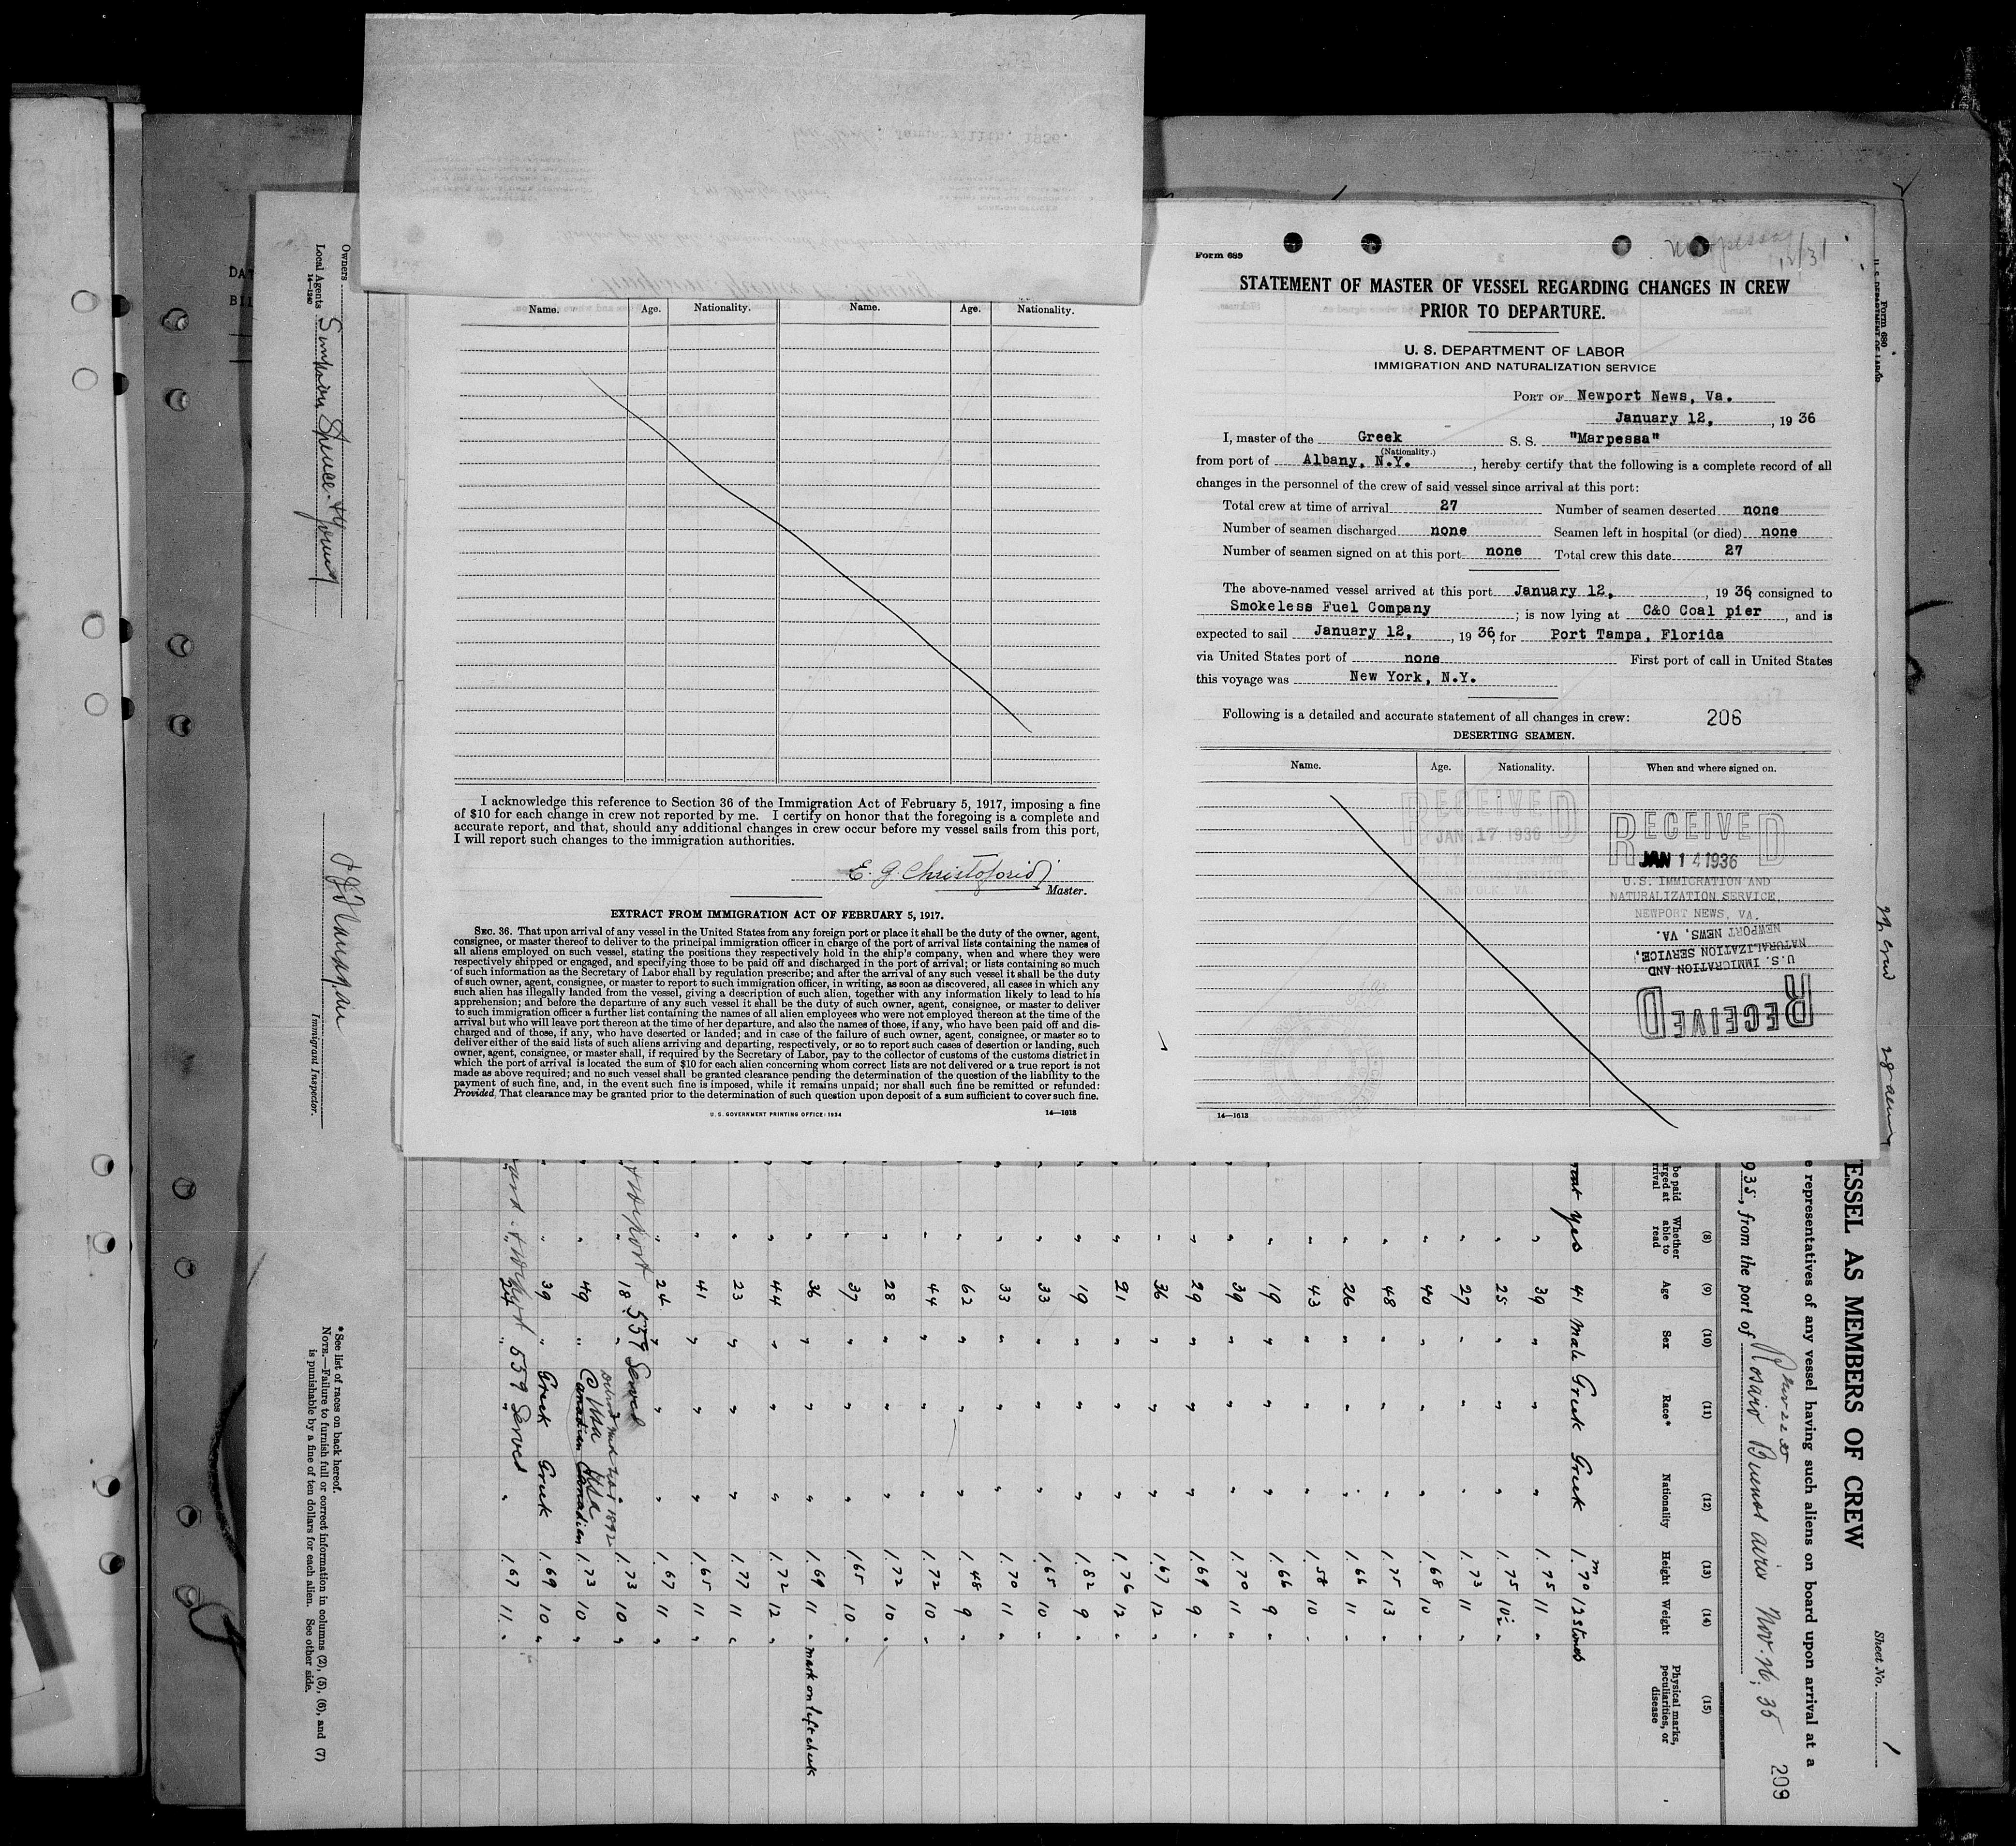 Form 689
12/31
STATEMENT OF MASTER OF VESSEL REGARDING CHANGES IN CREW
PRIOR TO DEPARTURE.
U. S. DEPARTMENT OF LABOR
IMMIGRATION AND NATURALIZATION SERVICE
PORT OF Newport News, Va.
January 12, , 19 36
I, master of the Greek S. S. "Marpessa"
(Nationality.)
from port of Albany, N.Y. , hereby certify that the following is a complete record of all
changes in the personnel of the crew of said vessel since arrival at this port:
Total crew at time of arrival 27 Number of seamen deserted none
Number of seamen discharged none Seamen left in hospital (or died) none
Number of seamen signed on at this port none Total crew this date 27
The above-named vessel arrived at this port January 12, , 19 36, consigned to
Smokeless Fuel Company ; is now lying at C&O Coal pier , and is
expected to sail January 12, , 19 36, for Port Tampa, Florida
via United States port of none First port of call in United States
this voyage was New York, N.Y.
Following is a detailed and accurate statement of all changes in crew: 206
DESERTING SEAMEN.
Name. Age. Nationality. When and where signed on.
RECEIVED
JAN 17 1936
NORFOLK, VA.
RECEIVED
JAN 14 1936
U.S. IMMIGRATION AND
NATURALIZATION SERVICE,
NEWPORT NEWS, VA.
RECEIVED
U.S. IMMIGRATION AND
NATURALIZATION SERVICE,
NEWPORT NEWS, VA.
14—1613
Name. Age. Nationality. Name. Age. Nationality.
I acknowledge this reference to Section 36 of the Immigration Act of February 5, 1917, imposing a fine
of $10 for each change in crew not reported by me. I certify on honor that the foregoing is a complete and
accurate report, and that, should any additional changes in crew occur before my vessel sails from this port,
I will report such changes to the immigration authorities.
E. G. Christoforidj
Master.
EXTRACT FROM IMMIGRATION ACT OF FEBRUARY 5, 1917.
SEC. 36. That upon arrival of any vessel in the United States from any foreign port or place it shall be the duty of the owner, agent,
consignee, or master thereof to deliver to the principal immigration officer in charge of the port of arrival lists containing the names of
all aliens employed on such vessel, stating the positions they respectively hold in the ship's company, when and where they were
respectively shipped or engaged, and specifying those to be paid off and discharged in the port of arrival; or lists containing so much
of such information as the Secretary of Labor shall by regulation prescribe; and after the arrival of any such vessel it shall be the duty
of such owner, agent, consignee, or master to report to such immigration officer, in writing, as soon as discovered, all cases in which any
such alien has illegally landed from the vessel, giving a description of such alien, together with any information likely to lead to his
apprehension; and before the departure of any such vessel it shall be the duty of such owner, agent, consignee, or master to deliver
to such immigration officer a further list containing the names of all alien employees who were not employed thereon at the time of the
arrival but who will leave port thereon at the time of her departure, and also the names of those, if any, who have been paid off and dis-
charged and of those, if any, who have deserted or landed; and in case of the failure of such owner, agent, consignee, or master so to
deliver either of the said lists of such aliens arriving and departing, respectively, or so to report such cases of desertion or landing, such
owner, agent, consignee, or master shall, if required by the Secretary of Labor, pay to the collector of customs of the customs district in
which the port of arrival is located the sum of $10 for each alien concerning whom correct lists are not delivered or a true report is not
made as above required; and no such vessel shall be granted clearance pending the determination of the question of the liability to the
payment of such fine, and, in the event such fine is imposed, while it remains unpaid; nor shall such fine be remitted or refunded:
Provided, That clearance may be granted prior to the determination of such question upon deposit of a sum sufficient to cover such fine.
U. S. GOVERNMENT PRINTING OFFICE: 1934 14—1613
DAT
BIL
Form 680
U. S. DEPARTMENT OF LABOR
Sheet No. 1
ESSEL AS MEMBERS OF CREW
e representatives of any vessel having such aliens on board upon arrival at a
935, from the port of Rosario Buenos aires Nov. 16, 35
209
be paid
rged at
rrival
(8) Whether able to read
(9) Age
(10) Sex
(11) Race*
(12) Nationality
(13) Height
(14) Weight
(15) Physical marks, peculiarities, or disease
yes 41 Male Greek Greek 1.70 12 stones
" 39 " " " 1.75 11 "
" 25 " " " 1.75 10½ "
" 27 " " " 1.73 11 "
" 40 " " " 1.68 10 "
" 48 " " " 1.75 13 "
" 26 " " " 1.66 11 "
" 43 " " " 1.58 10 "
" 19 " " " 1.66 9 "
" 39 " " " 1.70 11 "
" 29 " " " 1.69 9 "
" 36 " " " 1.67 12 "
" 21 " " " 1.76 12 "
" 19 " " " 1.82 9 "
" 33 " " " 1.65 10 "
" 33 " " " 1.70 11 "
" 62 " " " 1.48 9 "
" 44 " " " 1.72 10 "
" 28 " " " 1.72 10 "
" 37 " " " 1.65 10 "
" 36 " " " 1.69 11 " mark on left cheek
" 44 " " " 1.72 12 "
" 23 " " " 1.77 11 "
" 41 " " " 1.65 11 "
" 24 " " " 1.67 11 "
" 18 " 559 Served 1.73 10 "
" 49 " Canadian Canadian 1.73 10 "
" 39 " Greek Greek 1.69 10 "
559 Served " 1.67 11 "
*See list of races on back hereof.
NOTE.—Failure to furnish full or correct information in columns (2), (5), (6), and (7)
is punishable by a fine of ten dollars for each alien. See other side.
Owners
Local Agents Simpson Spence & Young
14—1240
Immigrant Inspector.